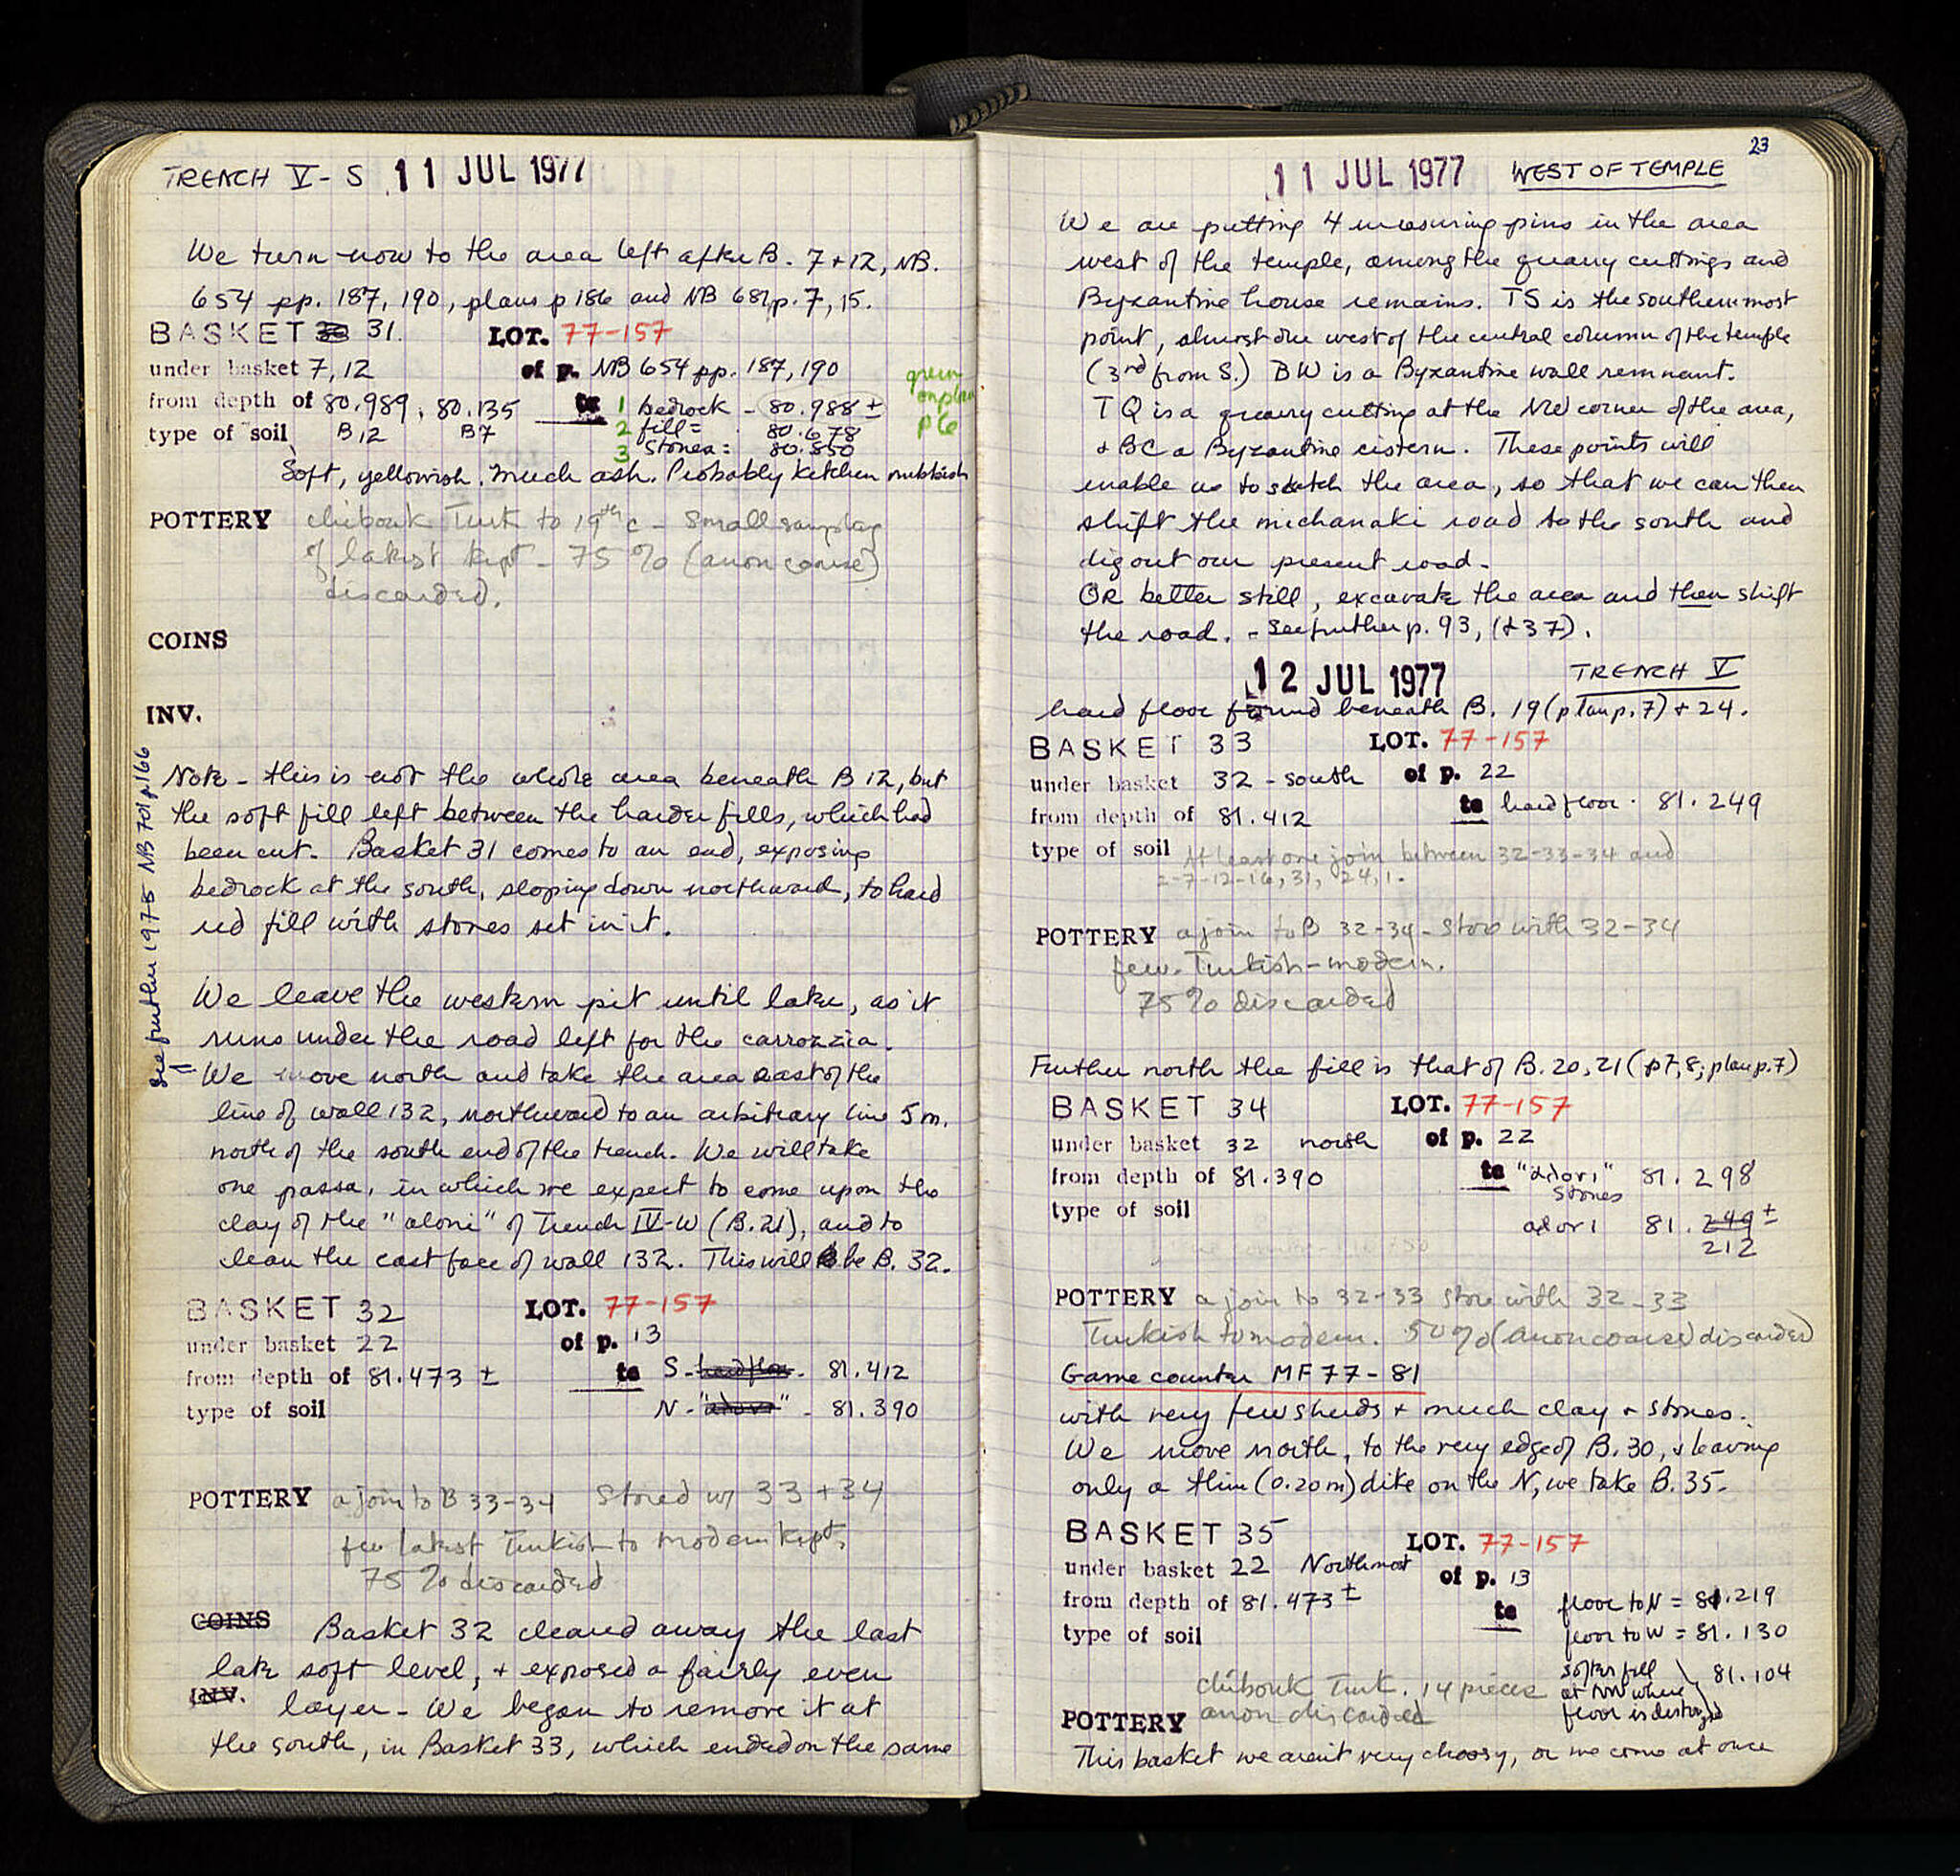 TRENCH V - S 11 JUL 1977
We turn now to the area left after B. 7+12, NB.
654 pp. 187, 190, plans p 186 and NB 681 p. 7, 15.
BASKET 31. LOT. 77-157
under basket 7, 12 of p. NB 654 pp. 187, 190
from depth of 80.989, 80.135 to 1 bedrock - 80.988 ±
type of soil B12 B7 2 fill = 80.678
3 stones: 80.850
green on plan p6
Soft, yellowish. Much ash. Probably kitchen rubbish
POTTERY chibouk Turk to 19th c - Small sampling
of latest kept - 75% (anon coarse)
discarded.
COINS
INV.
Note - this is not the whole area beneath B 12, but
the soft fill left between the harder fills, which had
been cut. Basket 31 comes to an end, exposing
bedrock at the south, sloping down northward, to hard
red fill with stones set in it.
See further 1975 NB 701 p.166
We leave the western pit until later, as it
runs under the road left for the carrozzia.
We move north and take the area east of the
line of wall 132, northward to an arbitrary line 5 m.
north of the south end of the trench. We will take
one passa, in which we expect to come upon the
clay of the "aloni" of Trench IV-W (B.21), and to
clean the east face of wall 132. This will be B. 32.
BASKET 32 LOT. 77-157
under basket 22 of p. 13
from depth of 81.473 ± to S - hard floor - 81.412
type of soil N - "adori" - 81.390
POTTERY a join to B 33-34 Stored w/ 33 + 34
few latest Turkish to modern kept.
75% discarded
COINS Basket 32 cleared away the last
late soft level, + exposed a fairly even
INV. layer - We began to remove it at
the south, in Basket 33, which ended on the same
23
11 JUL 1977 WEST OF TEMPLE
We are putting 4 measuring pins in the area
west of the temple, among the quarry cuttings and
Byzantine house remains. TS is the southernmost
point, almost due west of the central column of the temple
(3rd from S.) BW is a Byzantine wall remnant.
TQ is a quarry cutting at the NW corner of the area,
+ BC a Byzantine cistern. These points will
enable us to sketch the area, so that we can then
shift the michanaki road to the south and
dig out our present road -
OR better still, excavate the area and then shift
the road. - See further p. 93, (+37).
12 JUL 1977 TRENCH V
hard floor found beneath B. 19 (plan p. 7) + 24.
BASKET 33 LOT. 77-157
under basket 32 - south of p. 22
from depth of 81.412 to hard floor. 81.249
type of soil At least one join between 32-33-34 and
2-7-12-16, 31, 24, 1.
POTTERY a join to B 32-34 - Store with 32-34
few Turkish - modern.
75% discarded
Further north the fill is that of B. 20, 21 (p 7, 8; plan p. 7)
BASKET 34 LOT. 77-157
under basket 32 north of p. 22
from depth of 81.390 to "adori" stones 81.298
type of soil adori 81.249 ±
212
POTTERY a join to 32-33 store with 32-33
Turkish to modern. 50% (anon coarse) discarded
Game counter MF 77-81
with very few sherds + much clay + stones.
We move north, to the very edge of B. 30, + leaving
only a thin (0.20 m) dike on the N, we take B. 35.
BASKET 35 LOT. 77-157
under basket 22 Northmost of p. 13
from depth of 81.473 ± to floor to N = 81.219
type of soil floor to W = 81.130
softer fill at NW where floor is destroyed } 81.104
chibouk Turk. 14 pieces
POTTERY anon discarded
This basket we aren't very choosy, or we come at once